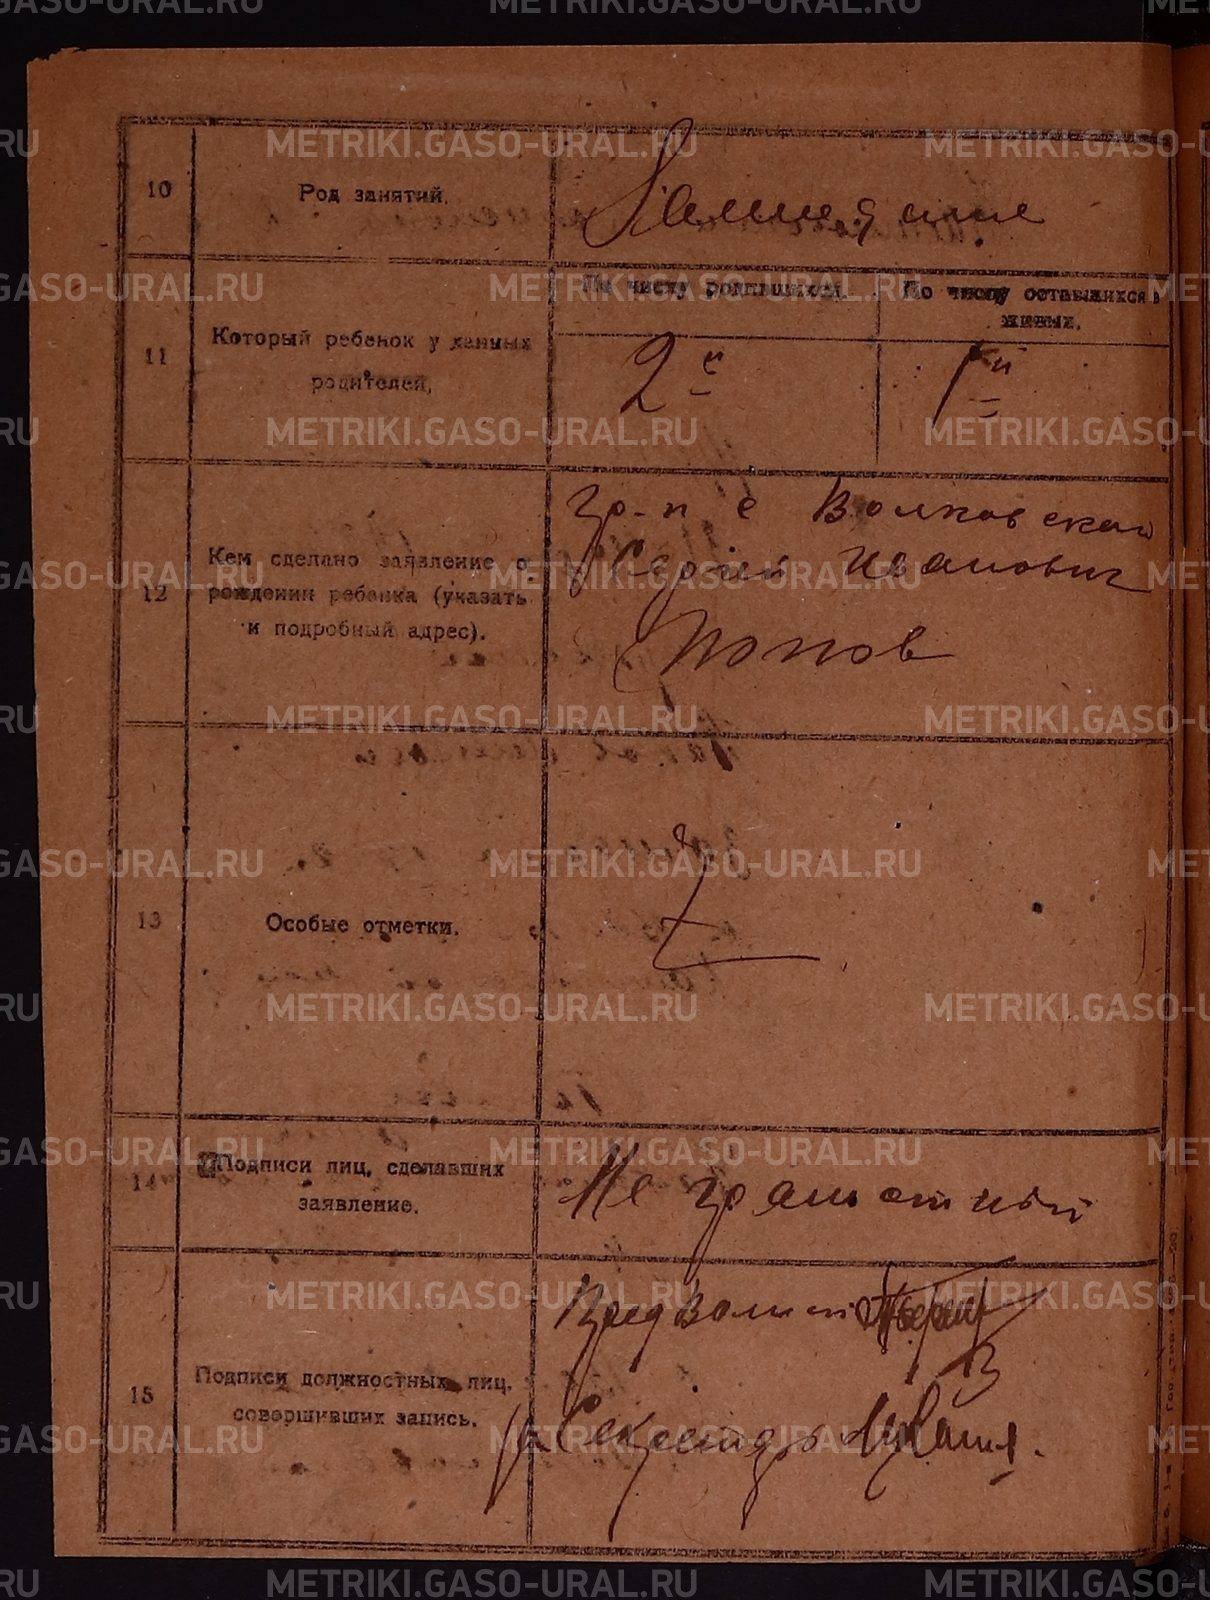 10
Род занятий.
11
Который ребенок у данных
родителей.
По числу родившихся.
По числу оставшихся в
живых.
2й
1й
12
Кем сделано заявление о
рождении ребенка (указать
и подробный адрес).
Гр-н с Волковской
Сергей Иванович
Попов
13
Особые отметки.
14
Подписи лиц, сделавших
заявление.
Не грамотный
15
Подписи должностных лиц,
совершивших запись.
Пред
Секретарь
METRIKI.GASO-URAL.RU